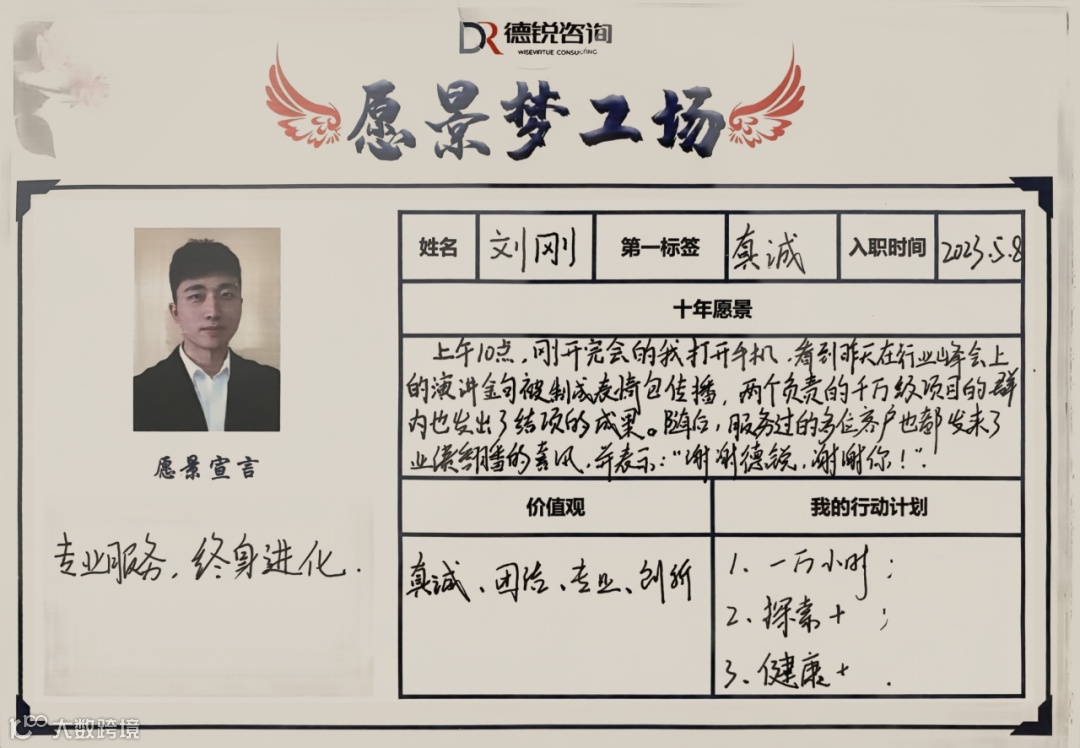 德锐咨询
WISEVIRTUE CONSULTING
愿景梦工场
姓名 刘刚 第一标签 真诚 入职时间 2023.5.8
十年愿景
上午10点，刚开完会的我打开手机，看到昨天在行业峰会上
的演讲金句被制成表情包传播，两个负责的千万级项目的群
内也发出了结项的成果。随后，服务过的多位客户也都发来了
业绩翻播的喜讯，并表示：“谢谢德锐，谢谢你！”.
愿景宣言
专业服务，终身进化.
价值观
真诚、团结、专业、创新
我的行动计划
1、一万小时；
2、探索+ ；
3、健康+ .
大数跨境